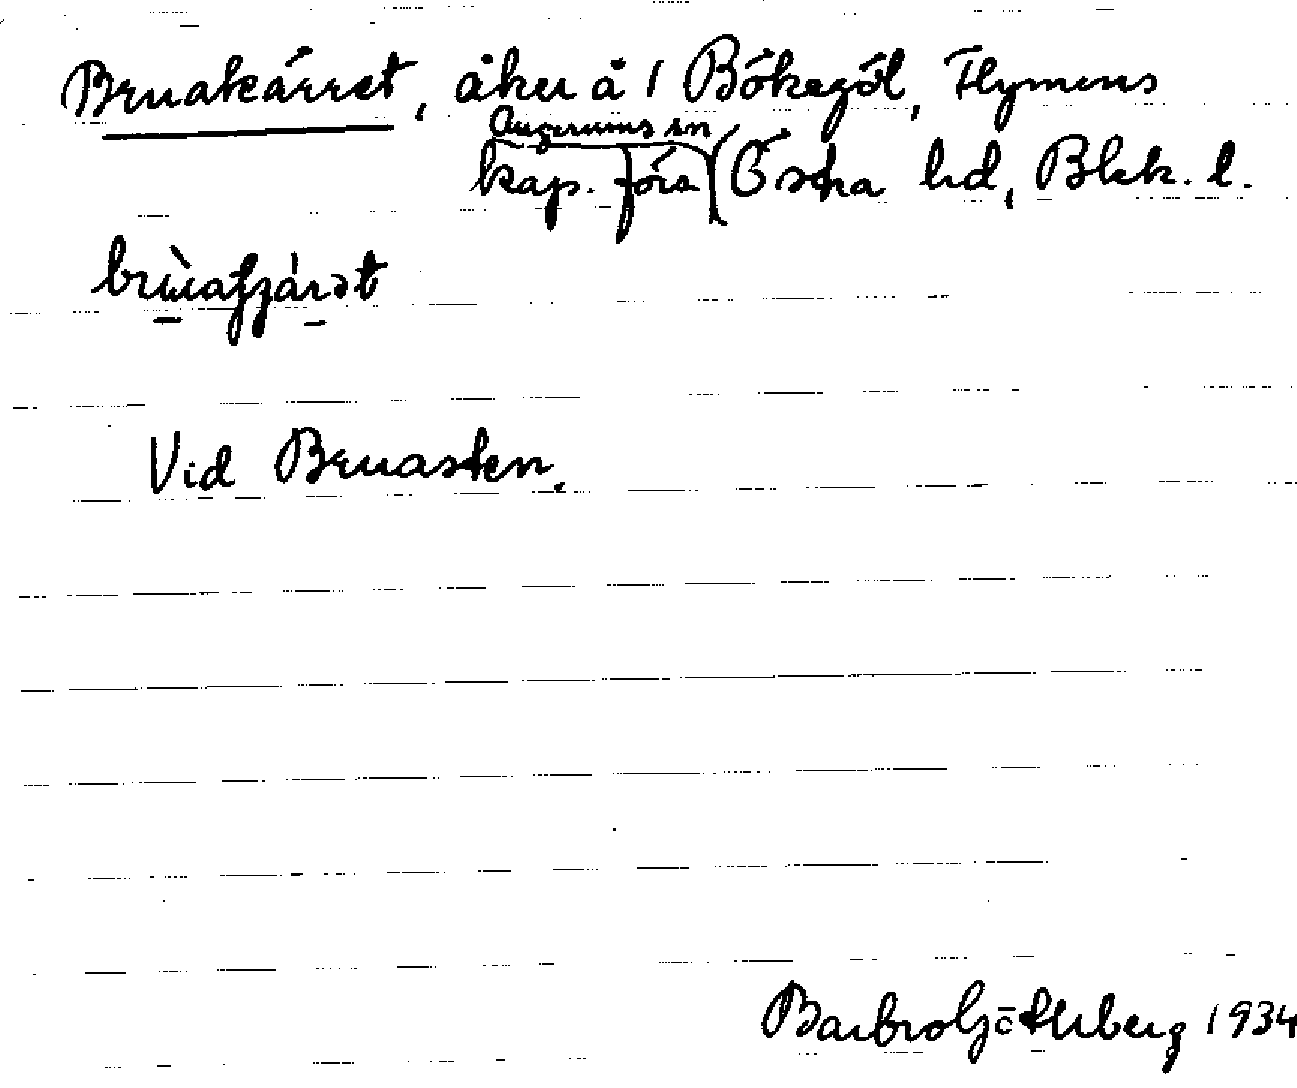 Bruakärret, åker å 1 Bökegöl, Flymens
Augerums sn
kap. förs. Östra hd, Blek. l.
Vid Bruasten.
Barbro Götherberg 1934